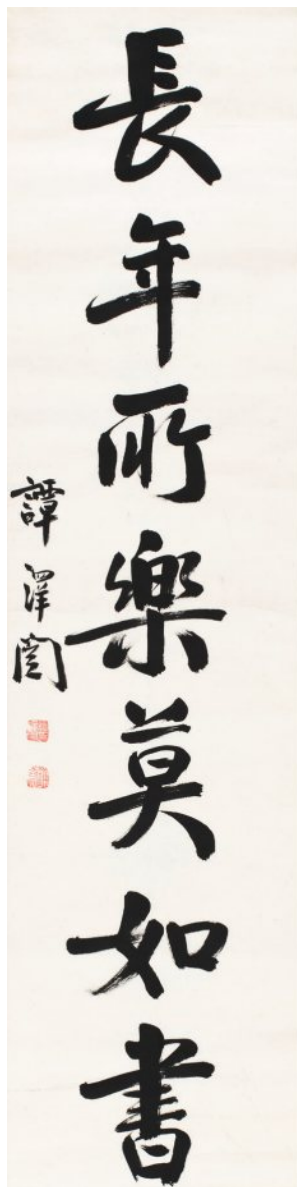 長年所樂莫如書
譚澤闿